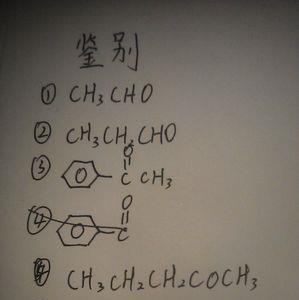 鉴别
① CH₃CHO
② CH₃CH₂CHO
③ O C CH₃
④ O C
④ CH₃CH₂CH₂COCH₃